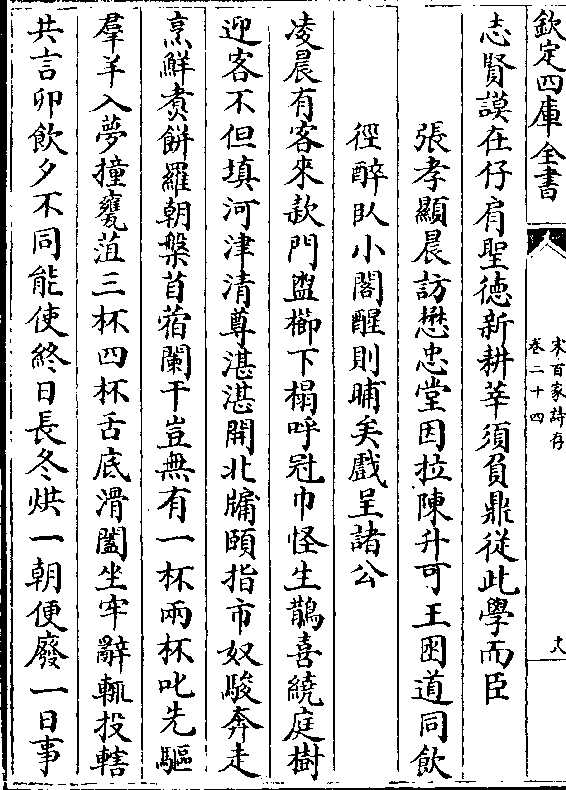 欽定四庫全書
宋百家詩存
卷二十四
十八
志賢謨在仔肩聖德新耕莘須負鼎從此學而臣
張孝顯晨訪懋忠堂因拉陳升可王囦道同飲
徑醉臥小閣醒則晡矣戲呈諸公
凌晨有客來款門盥櫛下榻呼冠巾怪生鵲喜繞庭樹
迎客不但填河津清尊湛湛開北牖頤指市奴駿奔走
烹鮮煑餅羅朝槃苜蓿闌干豈無有一杯兩杯叱先驅
羣羊入夢撞甕菹三杯四杯舌底滑闔坐牢辭輒投轄
共言卯飲夕不同能使終日長冬烘一朝便廢一日事